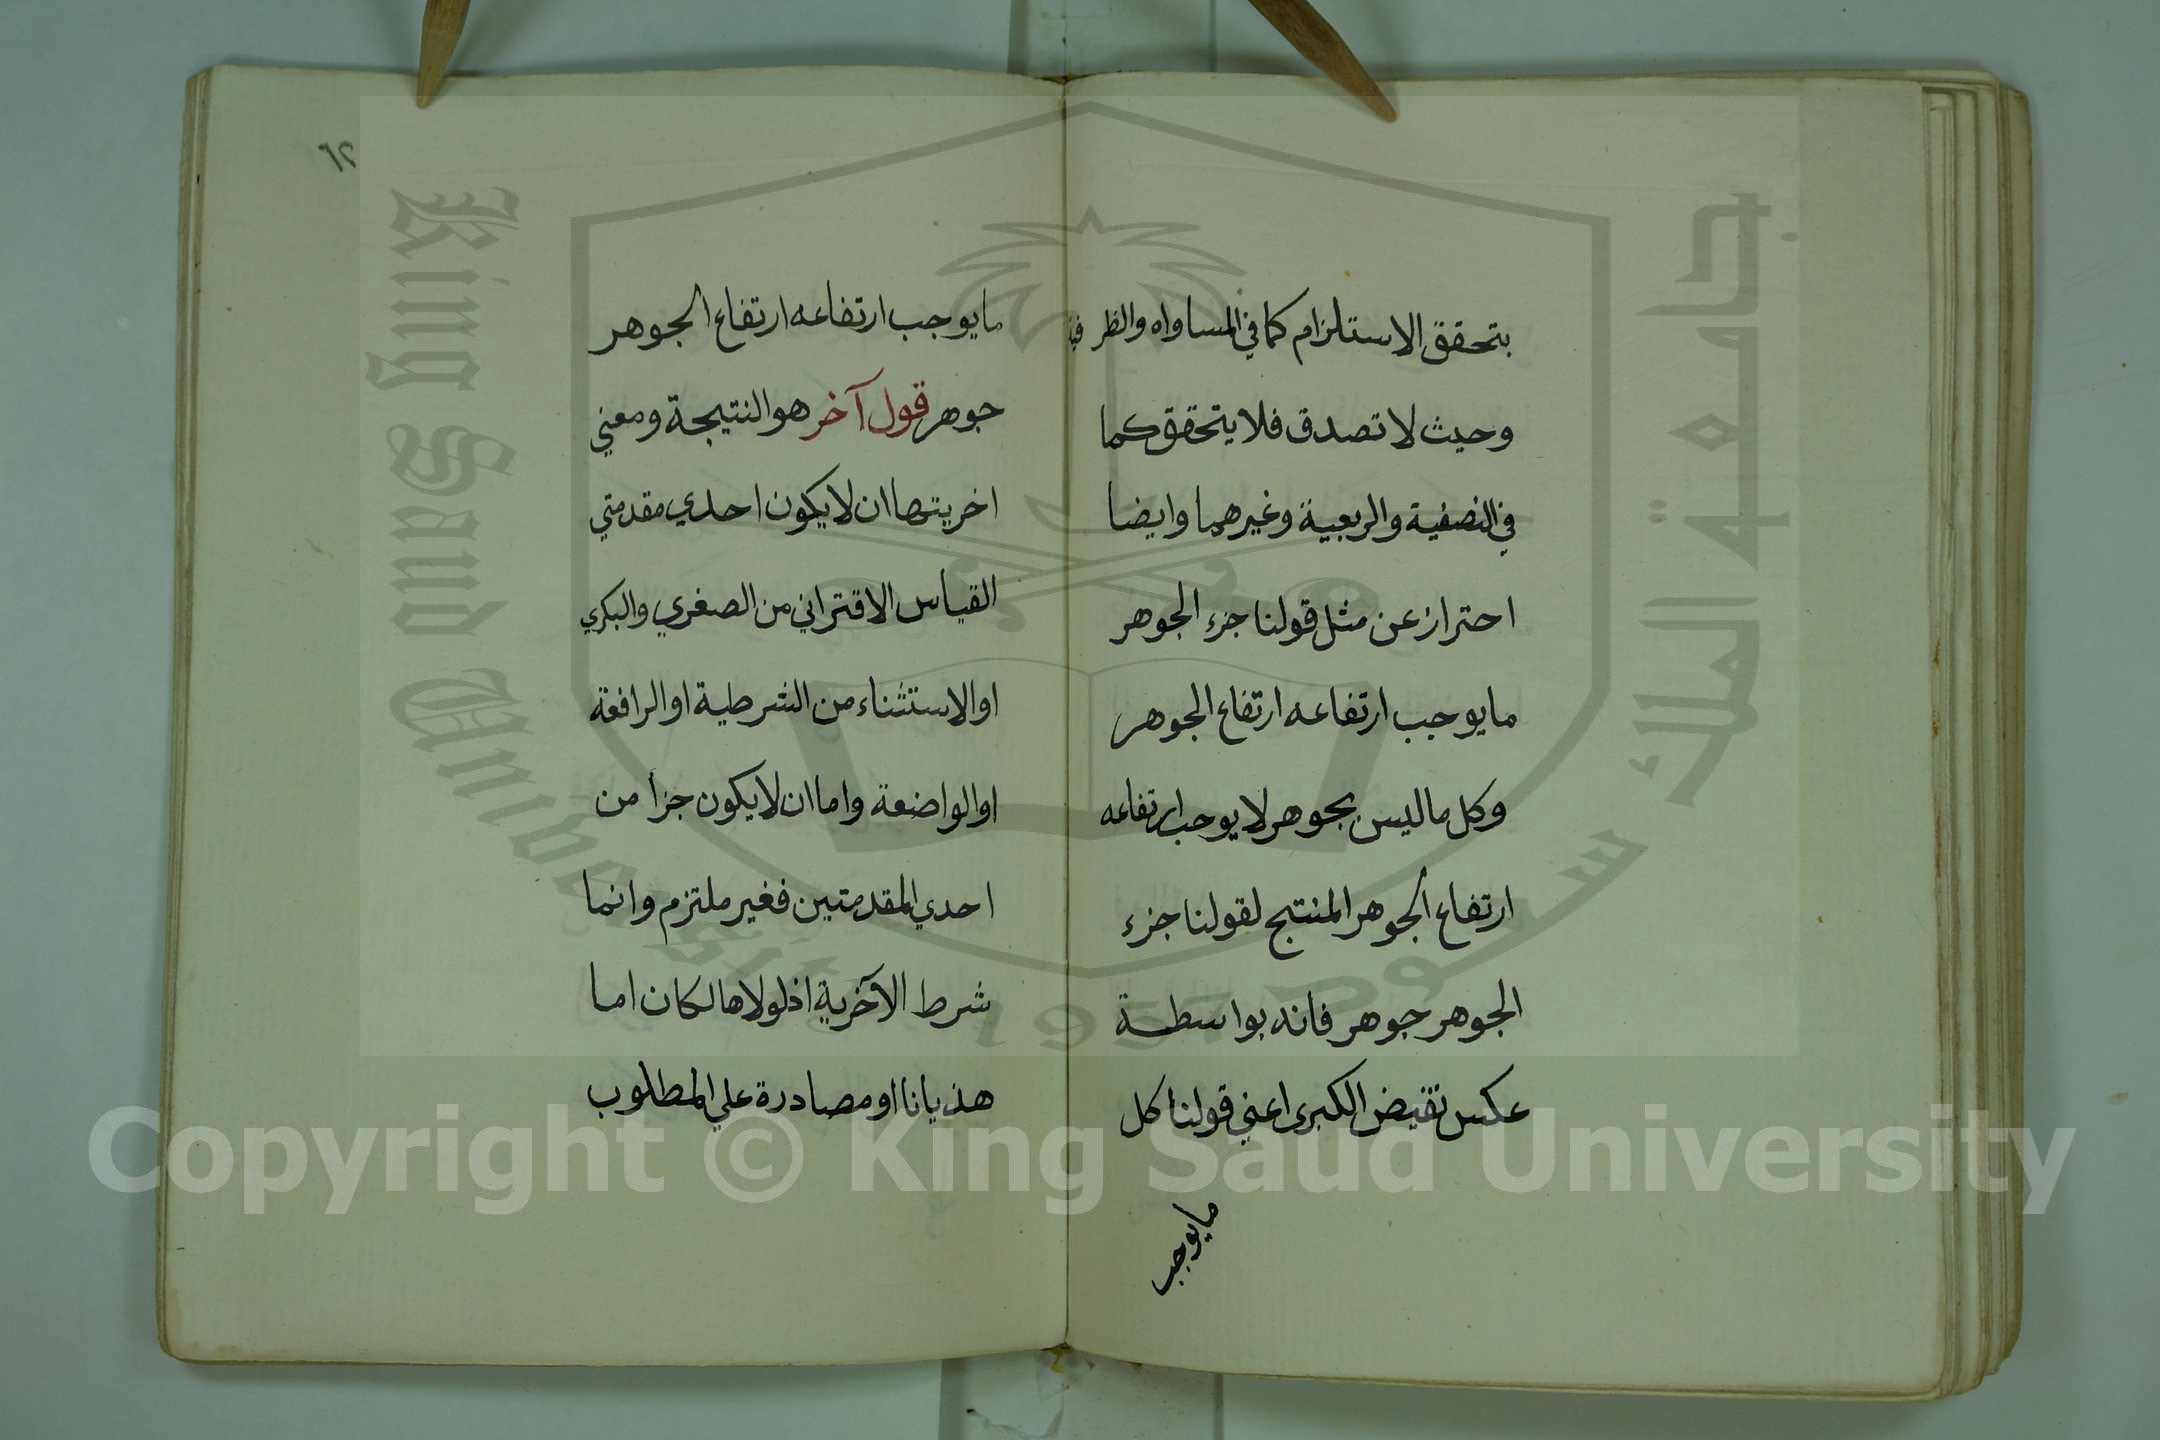 بتحقق الاستلزام كما في المساواه والظرفية
وحيث لا تصدق فلا يتحقق كما
في النصفية والربعية وغيرهما وايضا
احتراز عن مثل قولنا جزء الجوهر
ما يوجب ارتفاعه ارتفاع الجوهر
وكل ما ليس بجوهر لا يوجب ارتفاعه
ارتفاع الجوهر المنتج لقولنا جزء
الجوهر جوهر فانه بواسطة
عكس نقيض الكبرى اعني قولنا كل
ما يوجب
٦٢
ما يوجب ارتفاعه ارتفاع الجوهر
جوهر قول آخر هو النتيجة ومعني
اخريتها ان لا يكون احدي مقدمتي
القياس الاقتراني من الصغري والكبري
او الاستثناء من الشرطية او الرافعة
او الواضعة واما ان لا يكون جزأ من
احدي المقدمتين فغير ملتزم وانما
شرط الآخرية اذ لولاها لكان اما
هذيانا او مصادرة علي المطلوب
جامعة الملك سعود
King Saud University
1957
Copyright © King Saud University